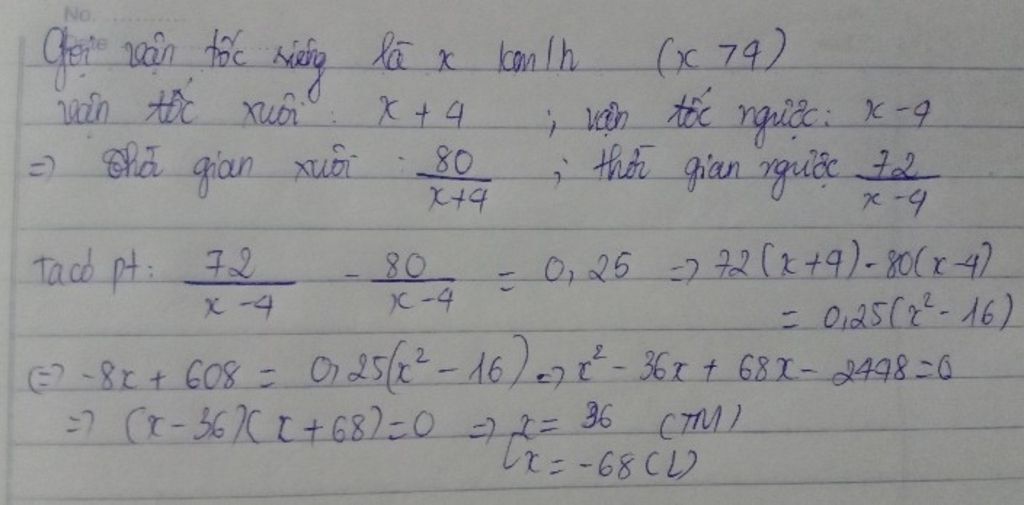 No.
Gọi vận tốc riêng là x km/h (x > 4)
vận tốc xuôi : x + 4 ; vận tốc ngược : x - 4
=> thời gian xuôi : 80/(x+4) ; thời gian ngược 72/(x-4)
Ta có pt : 72/(x-4) - 80/(x-4) = 0,25 => 72(x+4) - 80(x-4)
= 0,25(x² - 16)
<=> -8x + 608 = 0,25(x² - 16) => x² - 36x + 68x - 2448 = 0
=> (x-36)(x+68) = 0 => [x = 36 (TM)
x = -68 (L)